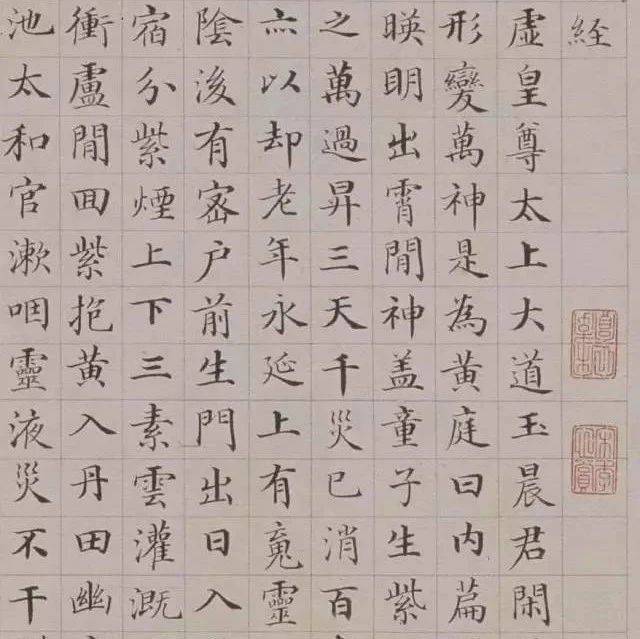 経
虛皇尊太上大道玉晨君閑
形變萬神是為黃庭曰內篇
暎明出霄閒神盖童子生紫
之萬過昇三天千災已消百
亦以却老年永延上有魂靈
陰後有密户前生門出日入
宿分紫煙上下三素雲灌溉
衝盧閒回紫抱黃入丹田幽
池太和官漱咽靈液災不干